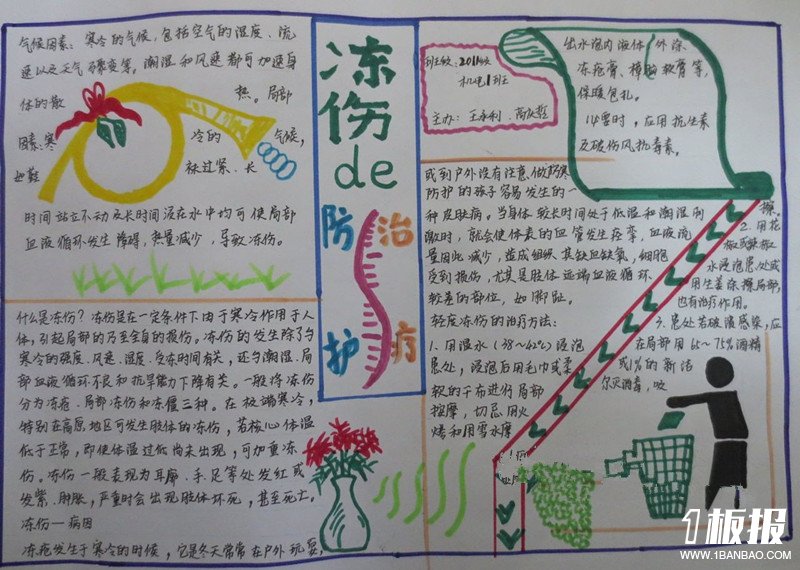 气候因素: 寒冷的气候,包括空气的湿度、流
速以及天气骤变等。潮湿和风速都可加速身
体的散 热。局部
因素:寒 冷的 气候,
如鞋 袜过紧、长
时间站立不动及长时间浸在水中均可使局部
血液循环发生障碍,热量减少,导致冻伤。
什么是冻伤?冻伤是在一定条件下由于寒冷作用于人
体,引起局部的乃至全身的损伤。冻伤的发生除了与
寒冷的强度、风速、湿度、受冻时间有关,还与潮湿、局
部血液循环不良和抗旱能力下降有关。一般将冻伤
分为冻疮、局部冻伤和冻僵三种。在极端寒冷,
特别在高原地区可发生肢体的冻伤,若核心体温
低于正常,即使体温过低尚未出现,可加重冻
伤。冻伤一般表现为耳廓、手、足等处发红或
发紫、肿胀,严重时会出现肢体坏死,甚至死亡。
冻伤—病因
冻疮发生于寒冷的时候,它是冬天常常在户外玩耍,
冻伤
de
防治
护疗
班级: 2011级
机电1班
主办: 王永利
出水泡内液体,外涂
冻疮膏、樟脑软膏等,
保暖包扎。
必要时,应用抗生素
及破伤风抗毒素。
或到户外没有注意做防寒
防护的孩子容易发生的一
种皮肤病。当身体较长时间处于低温和潮湿刺
激时,就会使体表的血管发生痉挛,血液流
量因此减少,造成组织缺血缺氧,细胞
受到损伤,尤其是肢体远端血液循环
较差的部位,如脚趾。
轻度冻伤的治疗方法:
1. 用温水(38~42℃)浸泡
患处,浸泡后用毛巾或柔
软的干布进行局部
按摩,切忌用火
烤和用雪水摩
擦。
2. 用花
椒或辣椒
水浸泡患处或
用生姜涂擦局部,
也有治疗作用。
3. 患处若破溃感染,应
在局部用65~75%酒精
或1%的新洁
尔灭消毒,吸
1板报
WWW.1BANBAO.COM